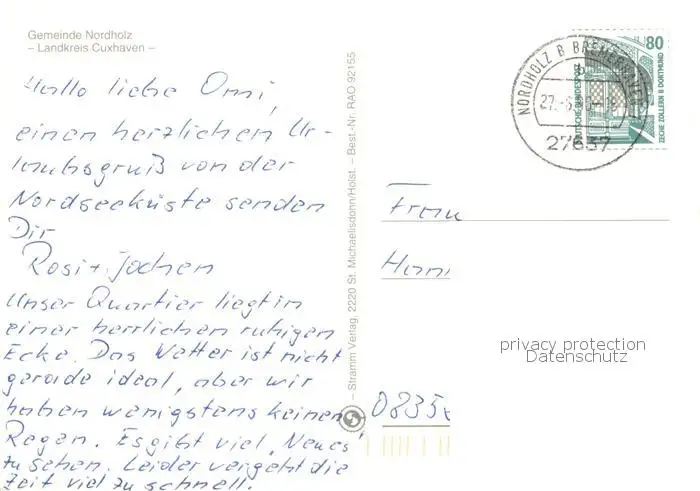 Gemeinde Nordholz
– Landkreis Cuxhaven –
Hallo liebe Omi,
einen herzlichen Ur-
laubsgruß von der
Nordseeküste senden
Dir
Rosi + Jochen
Unser Quartier liegt in
einer herrlichen ruhigen
Ecke. Das Wetter ist nicht
gerade ideal, aber wir
haben wenigstens keinen
Regen. Es gibt viel „Neues"
zu sehen. Leider vergeht die
Zeit viel zu schnell.
– Stramm Verlag, 2220 St. Michaelisdonn/Holst. – Best.-Nr. RAO 92155
NORDHOLZ B BREMERHAVEN
27637
80
DEUTSCHE BUNDESPOST
ZECHE ZOLLERN II DORTMUND
Frau
privacy protection
Datenschutz